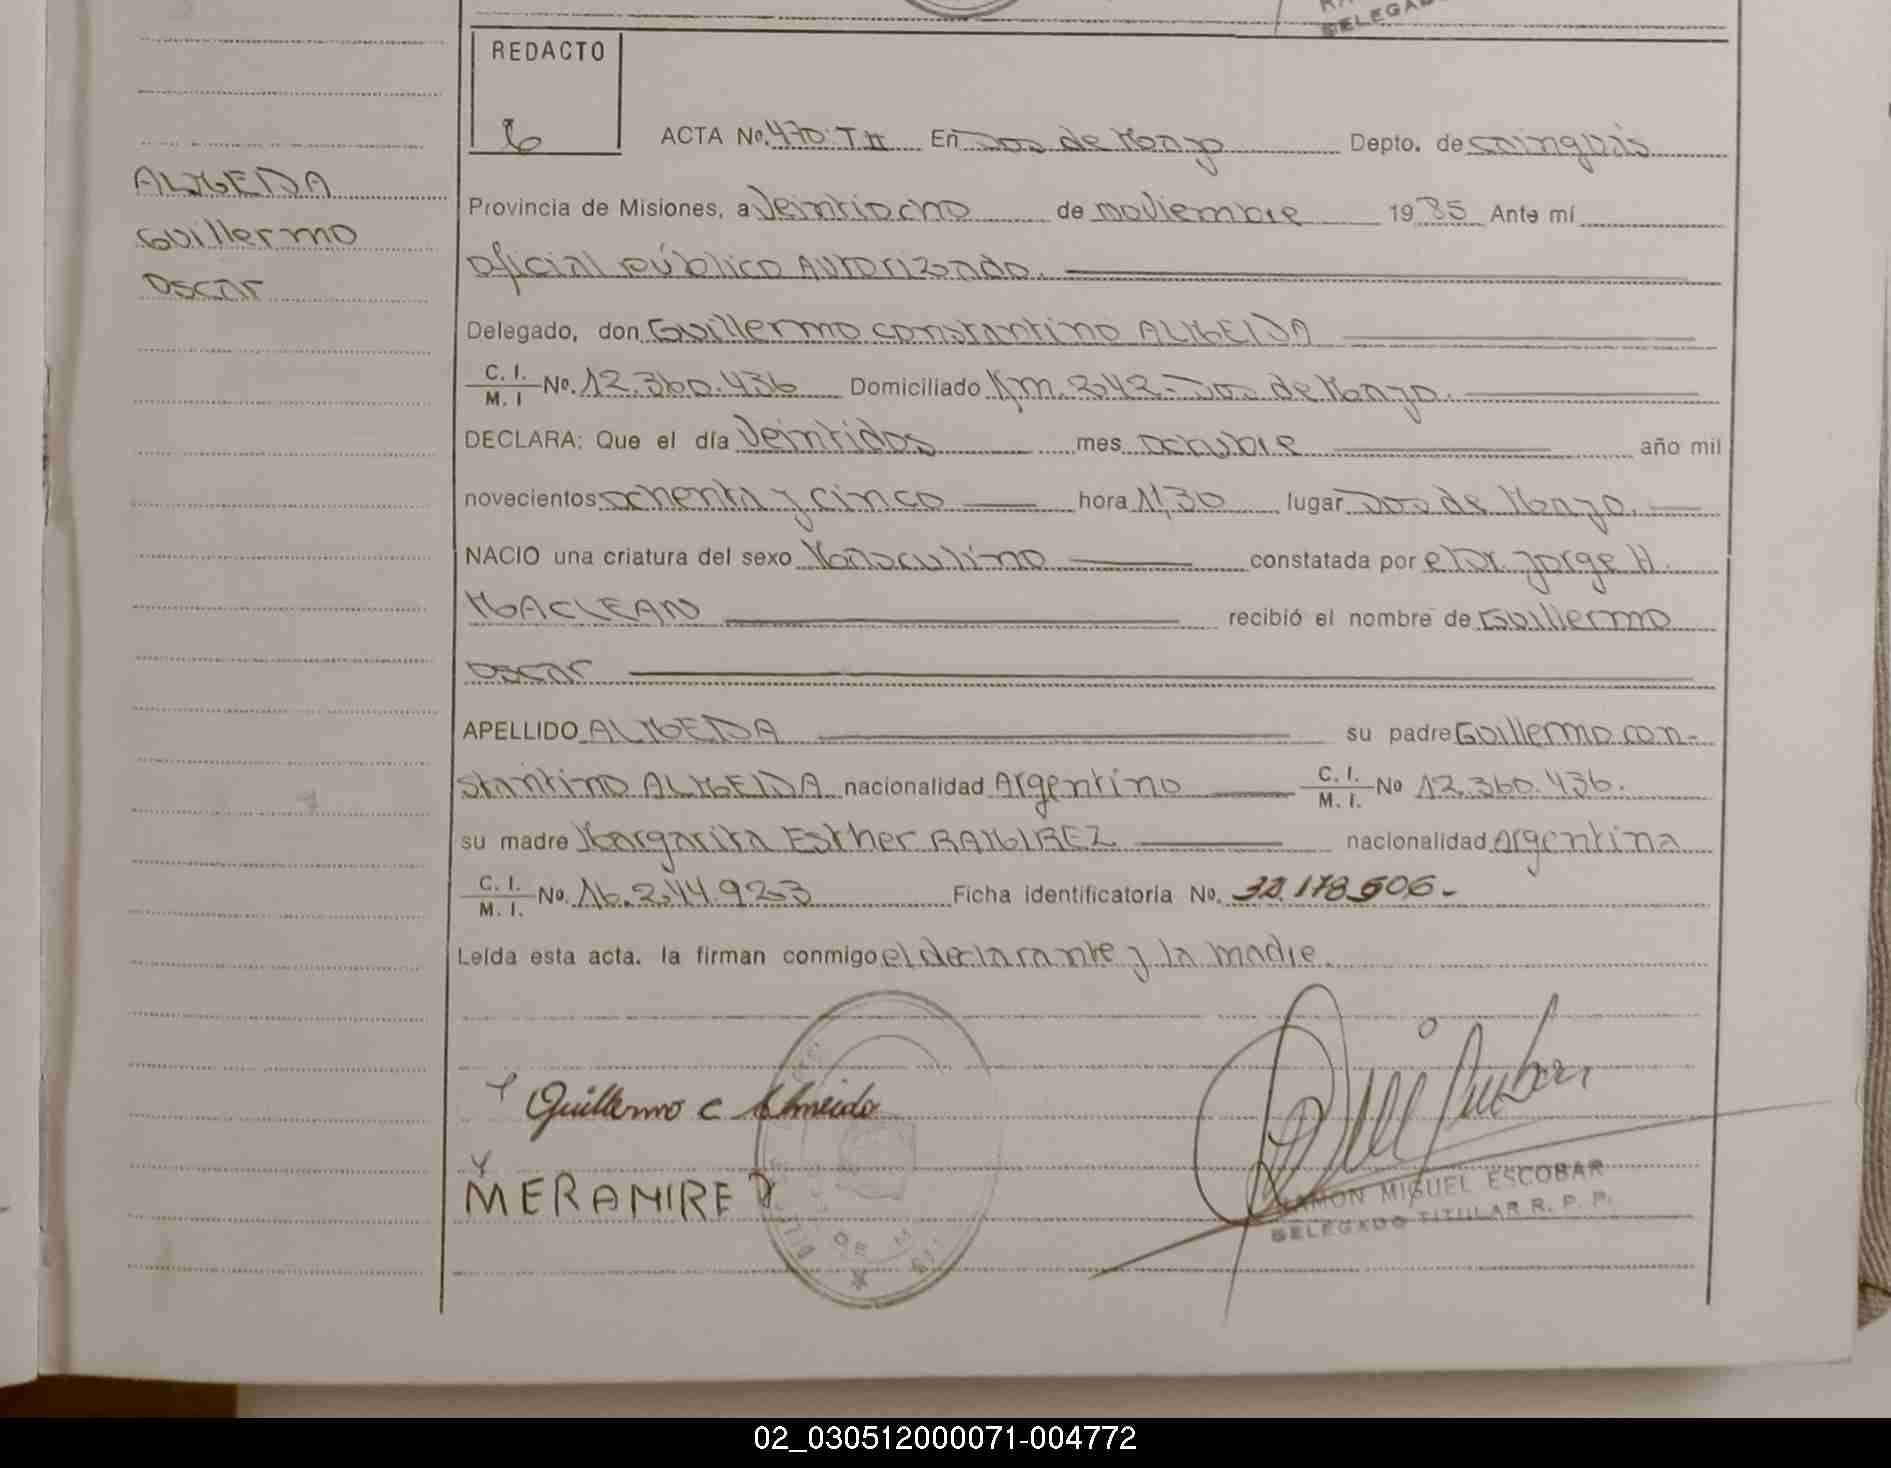 DELEGAD
REDACTO
6
ACTA No. 470 T II En Dos de Mayo Depto. de Cainguás
ALMEIDA
Guillermo
Oscar
Provincia de Misiones, a Veintiocho de noviembre 1985 Ante mí
Oficial público Autorizado.
Delegado, don Guillermo Constantino ALMEIDA
C. I. / M. I No. 12.360.436 Domiciliado Km. 242 - Dos de Mayo.
DECLARA: Que el día Veintidos mes octubre año mil
novecientos ochenta y cinco hora 11,30 lugar Dos de Mayo.
NACIO una criatura del sexo Masculino constatada por el Dr Jorge H.
MACLEAN recibió el nombre de Guillermo
Oscar
APELLIDO ALMEIDA su padre Guillermo Con-
stantino ALMEIDA nacionalidad Argentino C. I. / M. I. No 12.360.436.
su madre Margarita Esther RAMIREZ nacionalidad Argentina
C. I. / M. I. No. 16.244.923 Ficha identificatoria No. 32.178.506-
Leída esta acta, la firman conmigo el declarante y la madre.
Guillermo C Almeida
MERAMIREZ
RAMON MIGUEL ESCOBAR
DELEGADO TITULAR R. P. P.
02_030512000071-004772